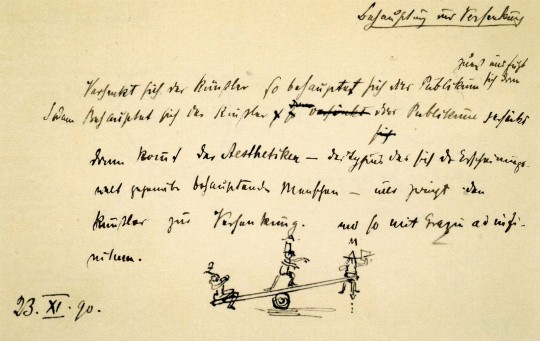 Behauptung und Versenkung
zürnt und fügt
Versenkt sich der Künstler so behauptet sich das Publikum sich dem
Behauptet sich der Künstler versenkt das Publikum
sich
dann kommt der Aesthetiker – der Typus des sich der Erscheinungs-
welt gegenüber behauptenden Menschen – und zwingt den
Künstler zur Versenkung. und so mit Grazie ad infi-
nitum.
23. XI. 90.